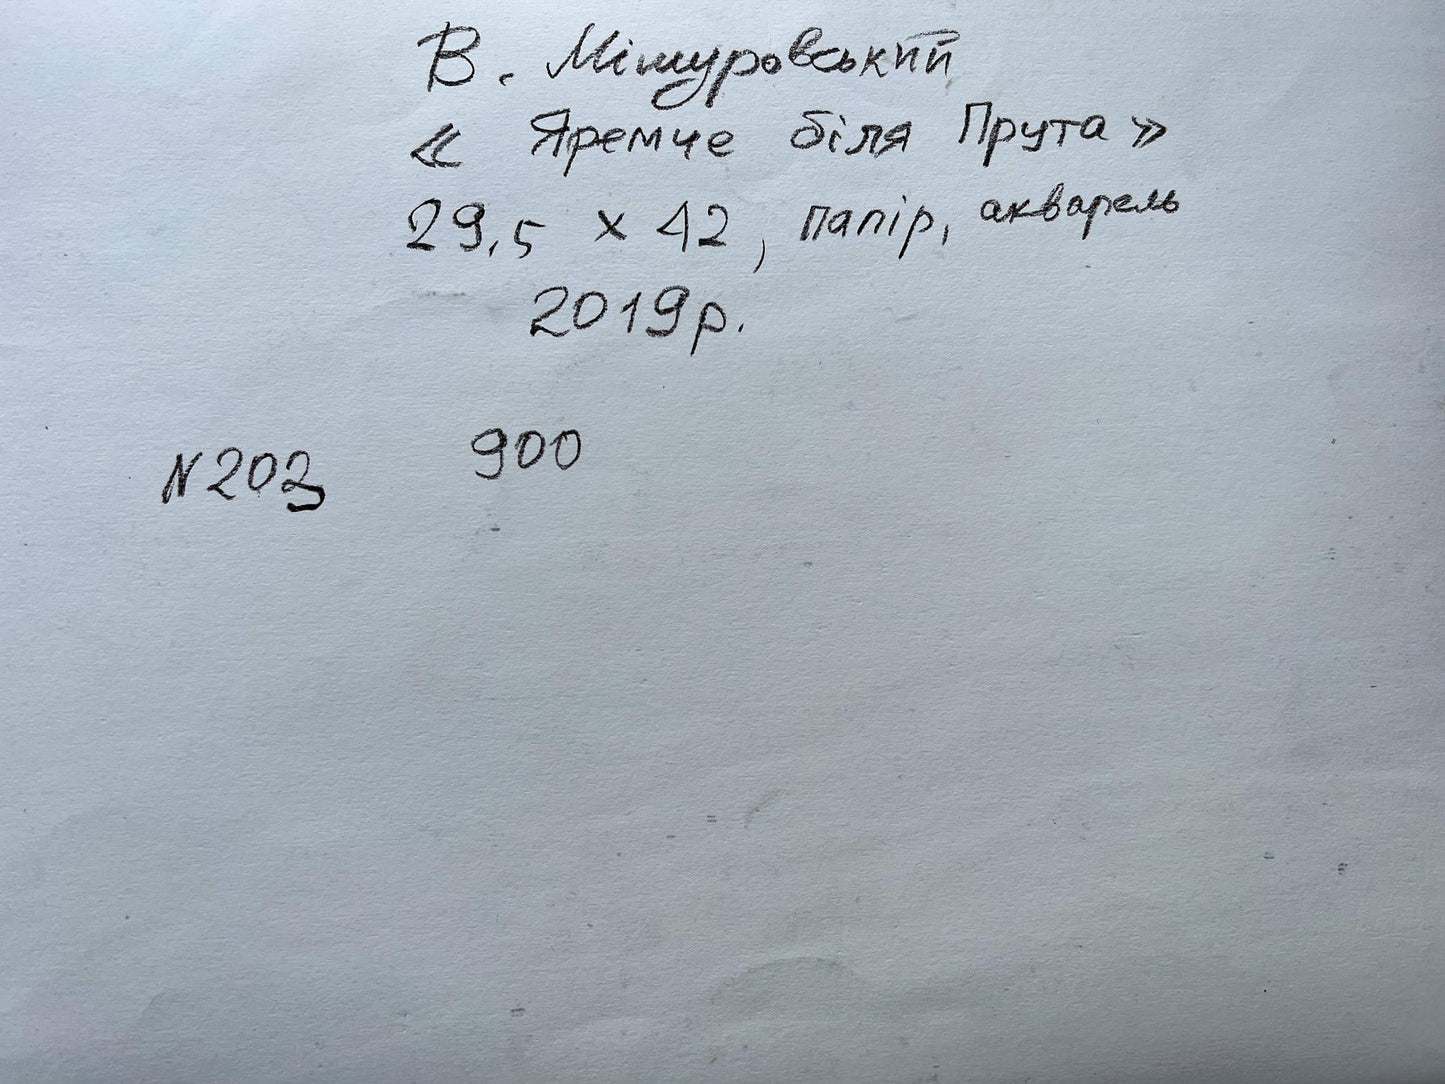 В. Мішуровський
« Яремче біля Прута »
29,5 × 42, папір, акварель
2019р.
900
N203